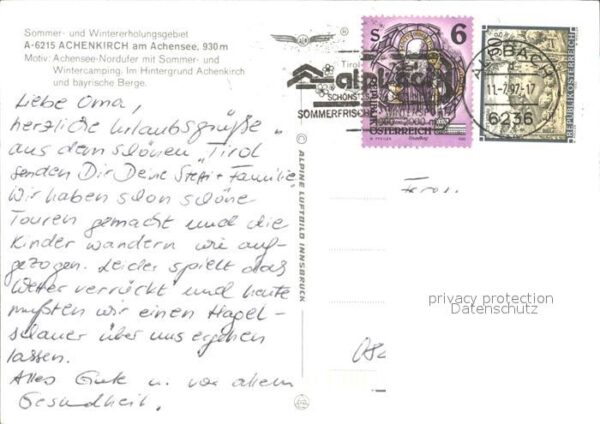 Sommer- und Wintererholungsgebiet
A-6215 ACHENKIRCH am Achensee, 930 m
Motiv: Achensee-Nordufer mit Sommer- und
Wintercamping. Im Hintergrund Achenkirch
und bayrische Berge.
Liebe Oma,
herzliche Urlaubsgrüße
aus dem schönen "Tirol
senden Dir Deine Steffi + Familie
Wir haben schon schöne
Touren gemacht und die
Kinder wandern wie auf-
gezogen. Leider spielt das
Wetter verrückt und heute
mußten wir einen Hagel-
schauer über uns ergehen
lassen.
Alles Gute u. vor allem
Gesundheit.
© ALPINE LUFTBILD INNSBRUCK
Tirol
SCHÖNST
SOMMERFRISCH
S 6
REPUBLIK
ÖSTERREICH
REPUBLIK ÖSTERREICH
ALPBACH
11.-7.97-17
6236
privacy protection
Datenschutz